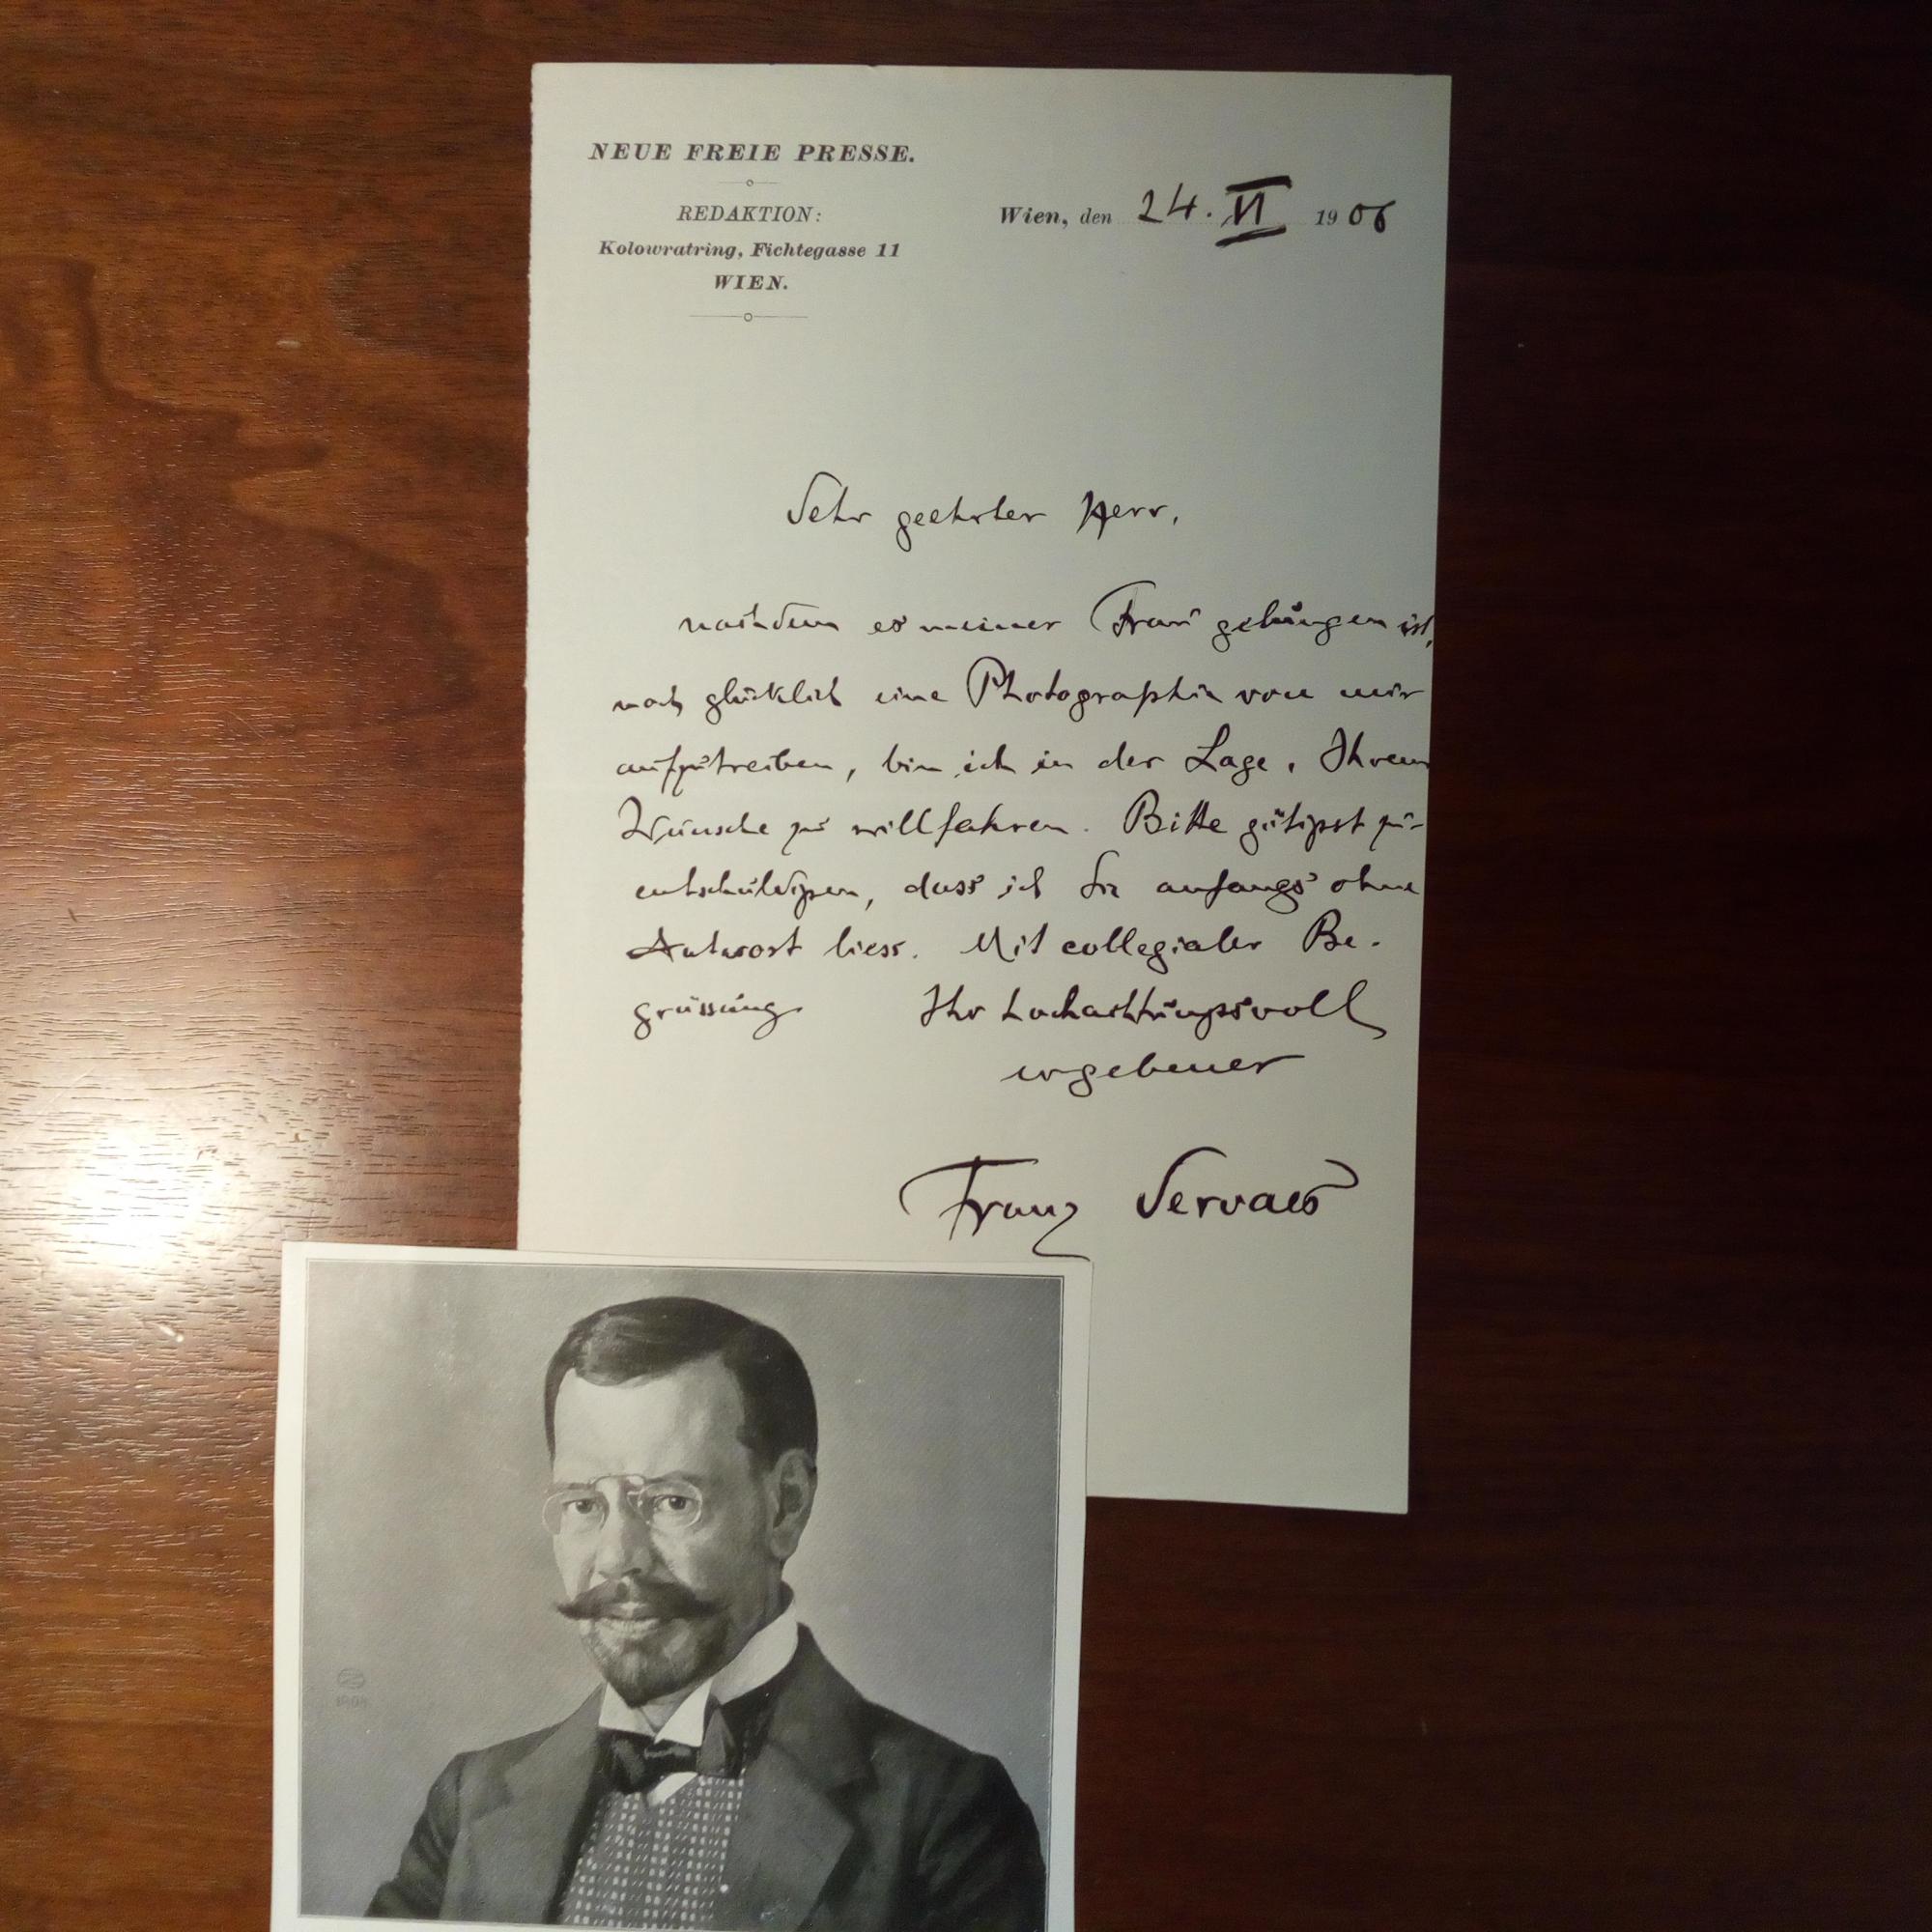 NEUE FREIE PRESSE.
REDAKTION:
Kolowratring, Fichtegasse 11
WIEN.
Wien, den 24. VI 1906
Sehr geehrter Herr,
nachdem es meiner Frau gelungen ist,
noch glücklich eine Photographie von mir
aufzutreiben, bin ich in der Lage, Ihrem
Wunsche zu willfahren. Bitte gütigst zu
entschuldigen, dass ich Sie anfangs ohne
Antwort liess. Mit collegialer Be-
grüssung Ihr hochachtungsvoll
ergebener
Franz Servaes
1904